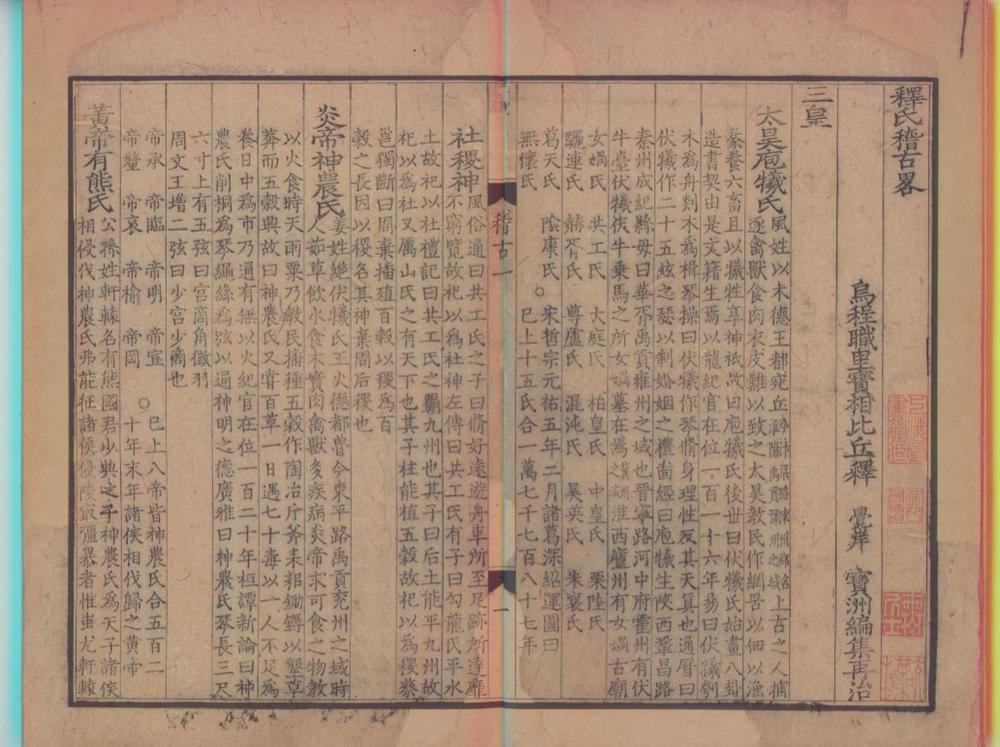 釋氏稽古畧
烏程職里寶相比丘釋　覺岸　寶洲編集再治
三皇
太昊庖犧氏
風姓以木德王都宛丘
上古之人捕
逐禽獸食肉衣皮難以致之太昊教民作網罟以佃以漁
豢養六畜且以犧牲享神祇故曰庖犧氏後世曰伏犧氏始畫八卦
造書契由是文籍生焉以龍紀官在位一百一十六年易曰伏犧刳
木為舟剡木為楫琴操曰伏犧作琴脩身理性反其天真也通曆曰
伏犧作二十五絃之瑟以制婚姻之禮
經曰庖犧生陝西鞏昌路
秦州成紀縣母曰華胥禹貢雍州之域也晉寧路河中府霍州有伏
牛臺伏犧伏牛乗馬之所女媧墓在焉
淮西廬州有女媧古廟
女媧氏　共工氏　大庭氏　柏皇氏　中皇氏　栗陸氏
驪連氏　赫胥氏　尊盧氏　混沌氏　昊英氏　朱襄氏
葛天氏　陰康氏○宋哲宗元祐五年二月諸葛深紹運圖曰
無懷氏　已上十五氏合一萬七千七百八十七年
稽古一
一
社稷神
風俗通曰共工氏之子曰脩好逺遊舟車所至足跡所逹靡
不窮覽故祀以為社神左傳曰共工氏有子曰勾龍氏平水
土故祀以社禮記曰共工氏之霸九州也其子曰后土能平九州故
祀以為社又厲山氏之有天下也其子柱能植五穀故祀以為稷蔡
邕獨斷曰周棄播殖百穀以稷為百
穀之長因以稷名其神棄周后稷也
炎帝神農氏
姜姓繼伏犧氏王火德都魯今東平路禹貢兖州之域時
人茹草飲水食木實肉禽獸多疾病炎帝求可食之物教
以火食時天雨粟乃教民播種五穀作陶冶斤斧耒耜鋤鎛以墾草
莽而五穀興故曰神農氏又嘗百草一日遇七十毒以一人不足為
養日中為市乃通有無以火紀官在位一百二十年桓譚新論曰神
農氏削桐為琴繩絲為弦以通神明之德廣雅曰神農氏琴長三尺
六寸上有五弦曰宮商角徵羽
周文王增二弦曰少宮少商也
帝承　帝臨　帝明　帝宜○已上八帝皆神農氏合五百二
帝釐　帝哀　帝榆　帝罔　十年末年諸侯相伐歸之黄帝
黄帝有熊氏
公孫姓軒轅名有熊國君少典之子神農氏為天子諸侯
相侵伐神農氏弗能征諸侯侵陵最彊暴者惟蚩尤軒轅